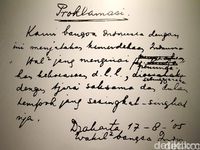 Proklamasi.
Kami bangsa Indonesia dengan
ini menjatakan kemerdekaan Indonesia
Hal² jang mengenai
kekoeasaan d.l.l.,
dengan tjara saksama dan dalam
tempoh jang sesingkat-singkat
nja.
Djakarta 17-8-'05
Wakil² bangsa Indo
detikcom